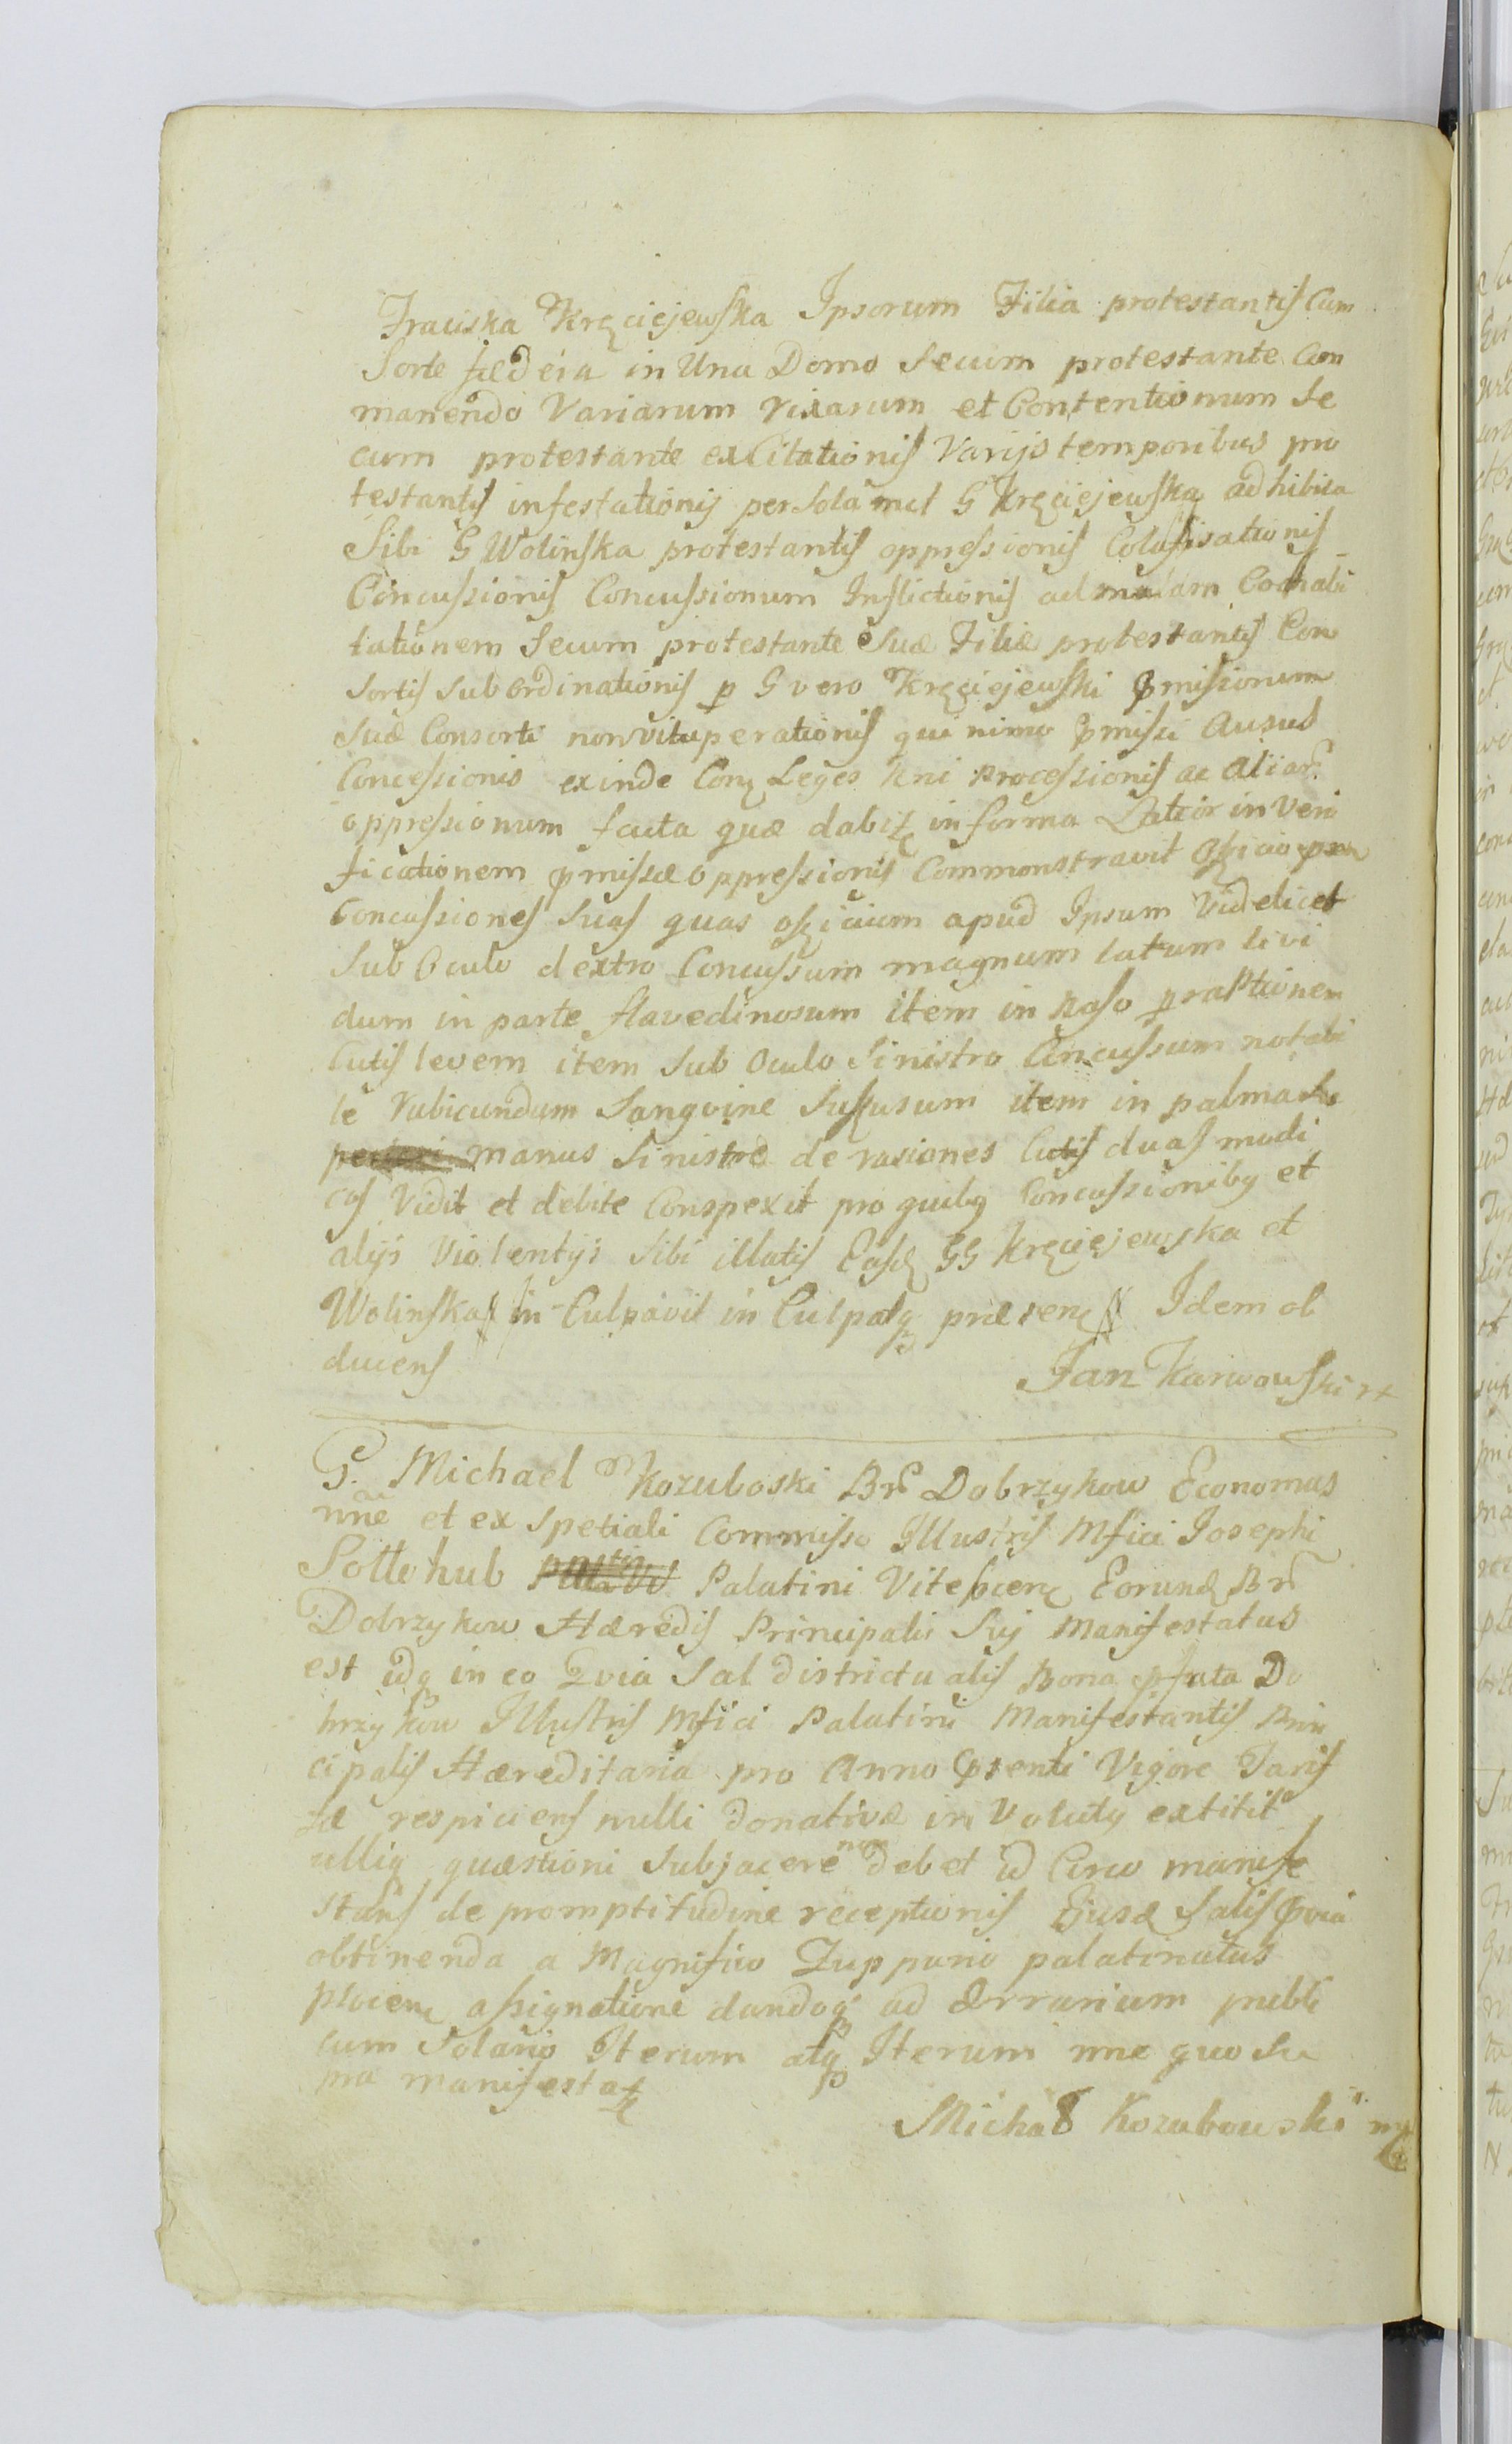 Fraciska Kręciejewska Ipsorum Filia protestantis Cum
Sorte fædeia in Una Domo Secum protestante Com
manendo Variarum rixarum et Contentionum Se
cum protestante exCitationis Varijs temporibus pro
testantis infestationis per Sola met G Kręciejewska adhibita
Sibi G Wolinska protestantis oppressionis Colafisationis
Concussionis Concussionum Inflictionis ad malam Cohabi
tationem Secum protestante Suæ Filiæ protestantis Con
Sortis Subordinationis p G vero Kręciejewski pmissorum
Suæ Consorti non vituperationis qui nimo pmissi Ausus
Concessionis exinde Con Leges Rni processionis ac aliar
oppressionum facta quæ dabit in forma Latior in Veri
ficationem pmissæ oppressionis Commonstravit officio pnti
Concussiones Suas quas officium apud Ipsum Videlicet
Sub Oculo dextro Concussum magnum latum livi
dum in parte flavedinosum item in Naso praptionem
Cutis levem item Sub Oculo Sinistro Concussum notabi
le rubicundum Sanguine Suffusum item in palma
manus Sinistræ de rasiones Cutis duas modi
cas Vidit et debite Conspexit pro quibq Concussionibq et
alijs Violentijs Sibi illatis Easd GG Kręciejewska et
Wolinska in Culpavit in Culpatq præsen Idem ob
ducens
Jan Karwowski
G. Michael Kozuboski Br Dobrzykow Economus
nne et ex Spetiali Commisso Illustris Mfici Josephi
Sollohub Palatini Vitebscen Eorund Br
Dobrzykow Hæredis Principalis Sui Manifestatus
est idq in eo Quia Sal districtualis Bona pfata Do
brzykow Illustris Mfici Palatini Manifestantis Prin
cipalis Hæreditaria pro Anno psenti Vigore Tarif
fæ respiciens nulli donativæ in Volutq extitit
ulliq quæstioni Subjacere non debet id Circo manife
stans de promptitudine receptionis Ejusd Salis
obtinenda a Magnifico Zuppario palatinatus
plocen assignatione dandoq ad Ærrarium publi
cum Solario Iterum atq Iterum nne quo Su
pra manifestat
Michał Kozubowski mp